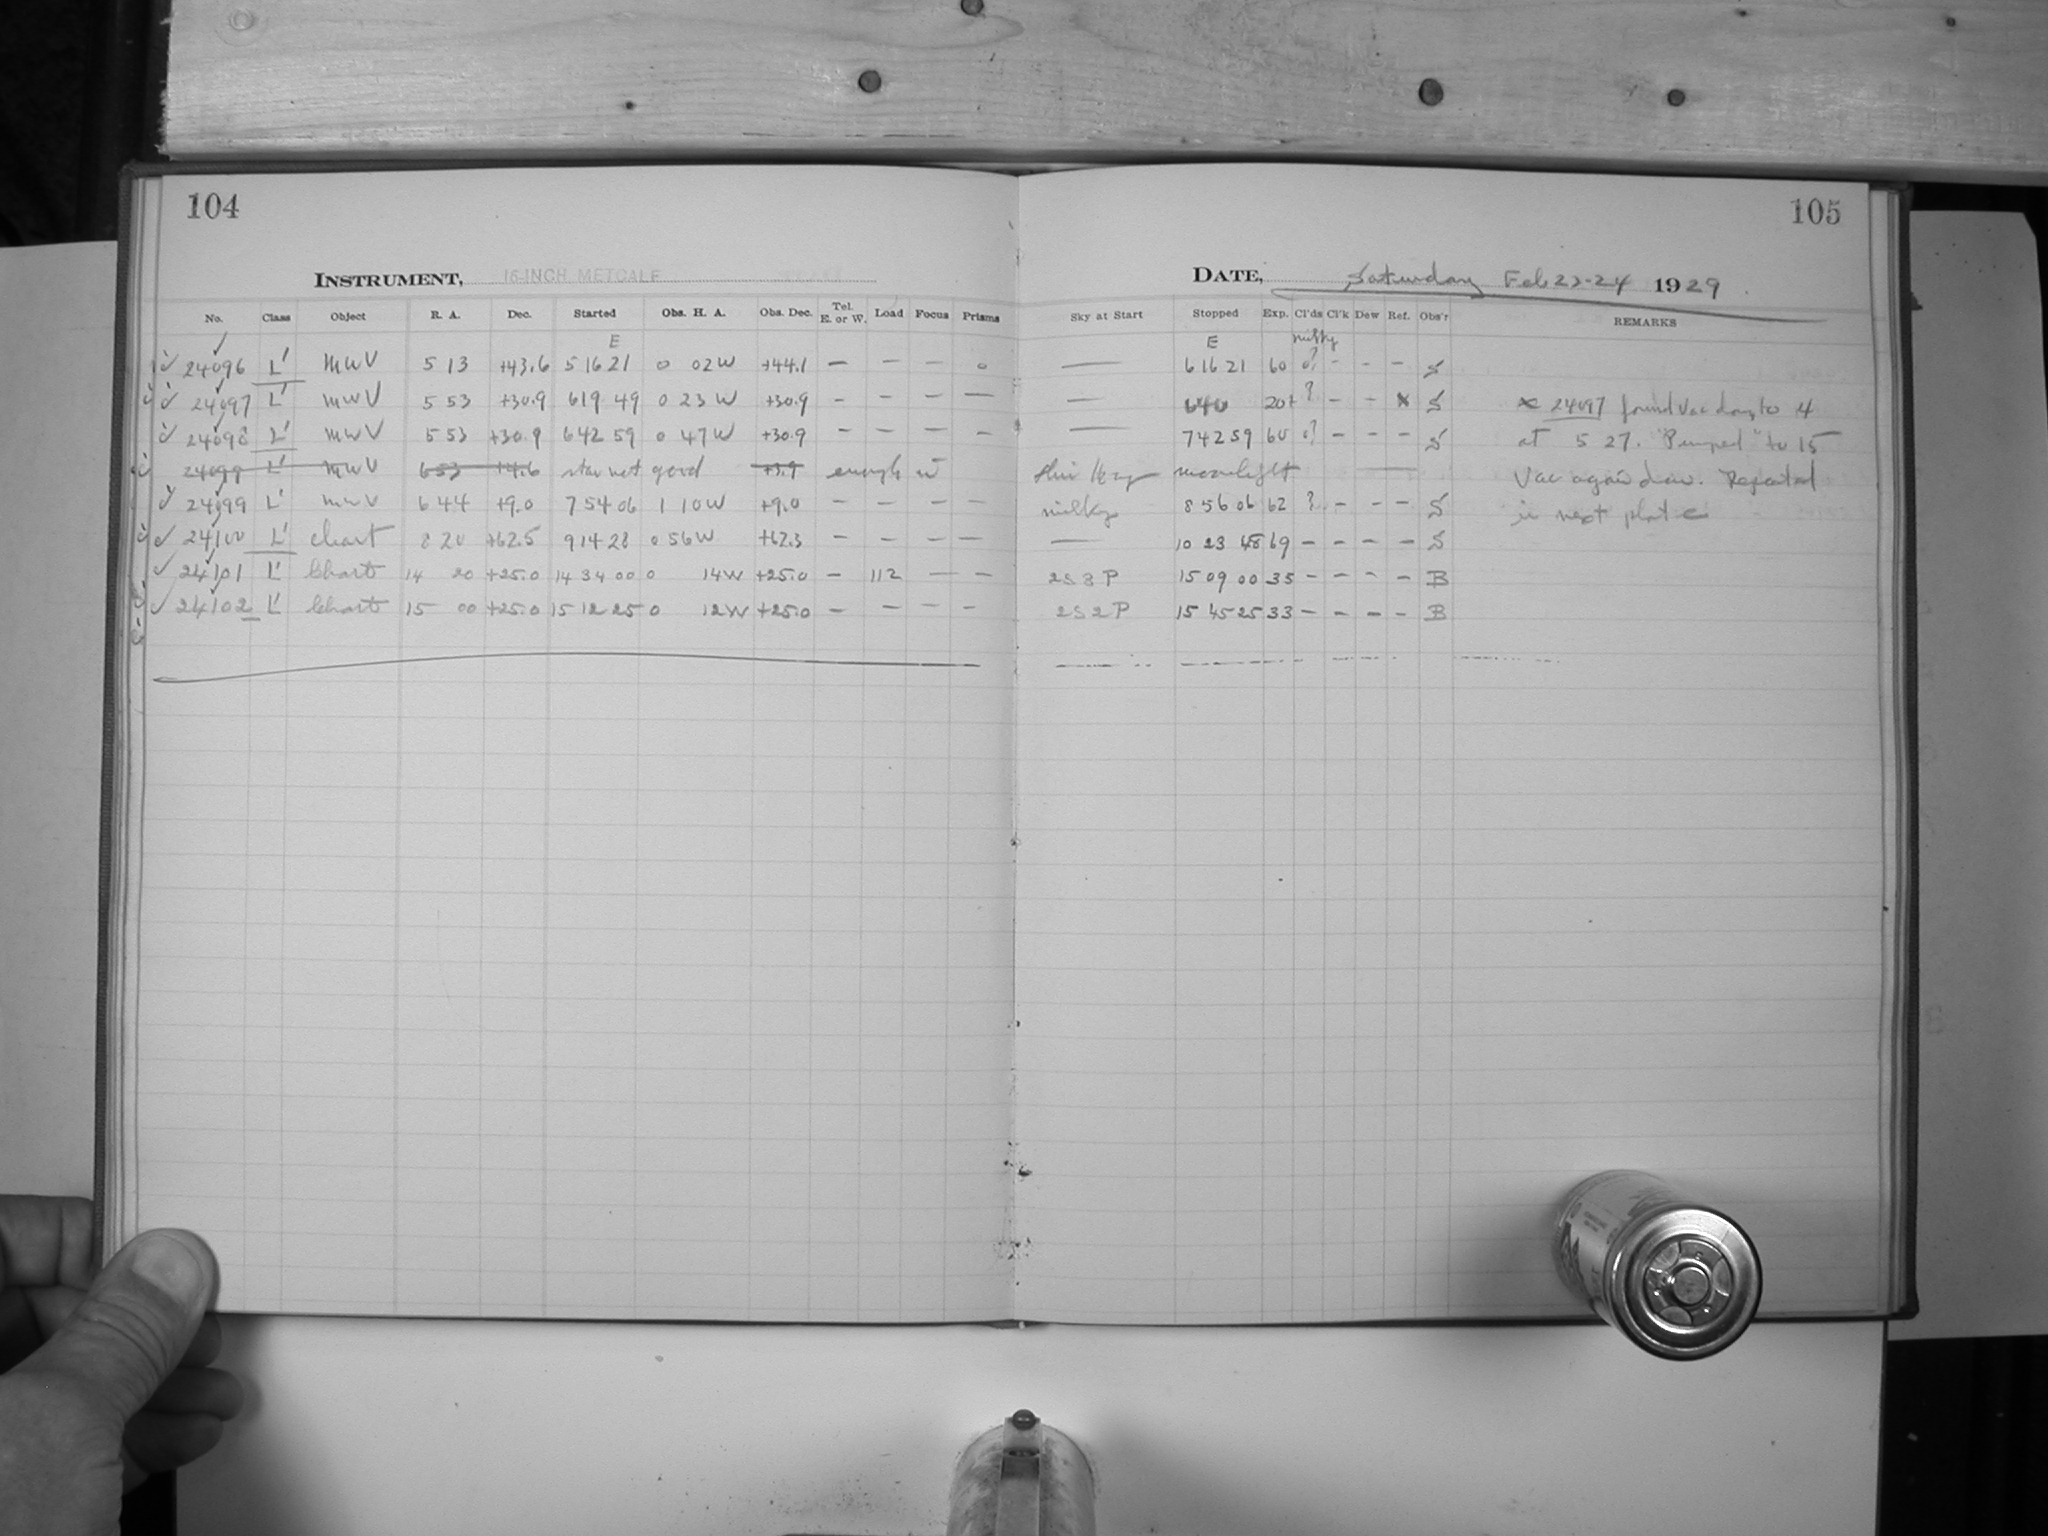 104
105
INSTRUMENT, 16-INCH METCALF
DATE, Saturday Feb 23-24 1929
No. Class Object R. A. Dec. Started Obs. H. A. Obs. Dec. Tel. E. or W. Load Focus Prisms Sky at Start Stopped Exp. Cl'ds Cl'k Dew Ref. Obs'r REMARKS
E E milky
24096 L' MWV 5 13 +43.6 5 16 21 0 02 W +44.1 — — — — — 6 16 21 60 ? - - - S
24097 L' MWV 5 53 +30.9 6 19 49 0 23 W +30.9 — — — — — 640 20+ ? - - x S x 24097 found Vac down to 4
24098 L' MWV 5 53 +30.9 6 42 59 0 47 W +30.9 — — — — — 7 42 59 60 ? - - - S at 5 27. "Pumped" to 15
24099 L' MWV 6 53 +4.6 star not good +3.9 enough in thin hazy moonlight Vac again down. Repeated
24099 L' MWV 6 44 +9.0 7 54 06 1 10 W +9.0 — — — — milky 8 56 06 62 ? - - - S in next plate
24100 L' Chart 8 20 +62.5 9 14 28 0 56 W +62.3 — — — — — 10 23 48 69 - - - - S
24101 L' Chart 14 20 +25.0 14 34 00 0 14 W +25.0 — 112 — — 2S 3P 15 09 00 35 - - - - B
24102 L' Chart 15 00 +25.0 15 12 25 0 12 W +25.0 — — — — 2S 2P 15 45 25 33 - - - - B